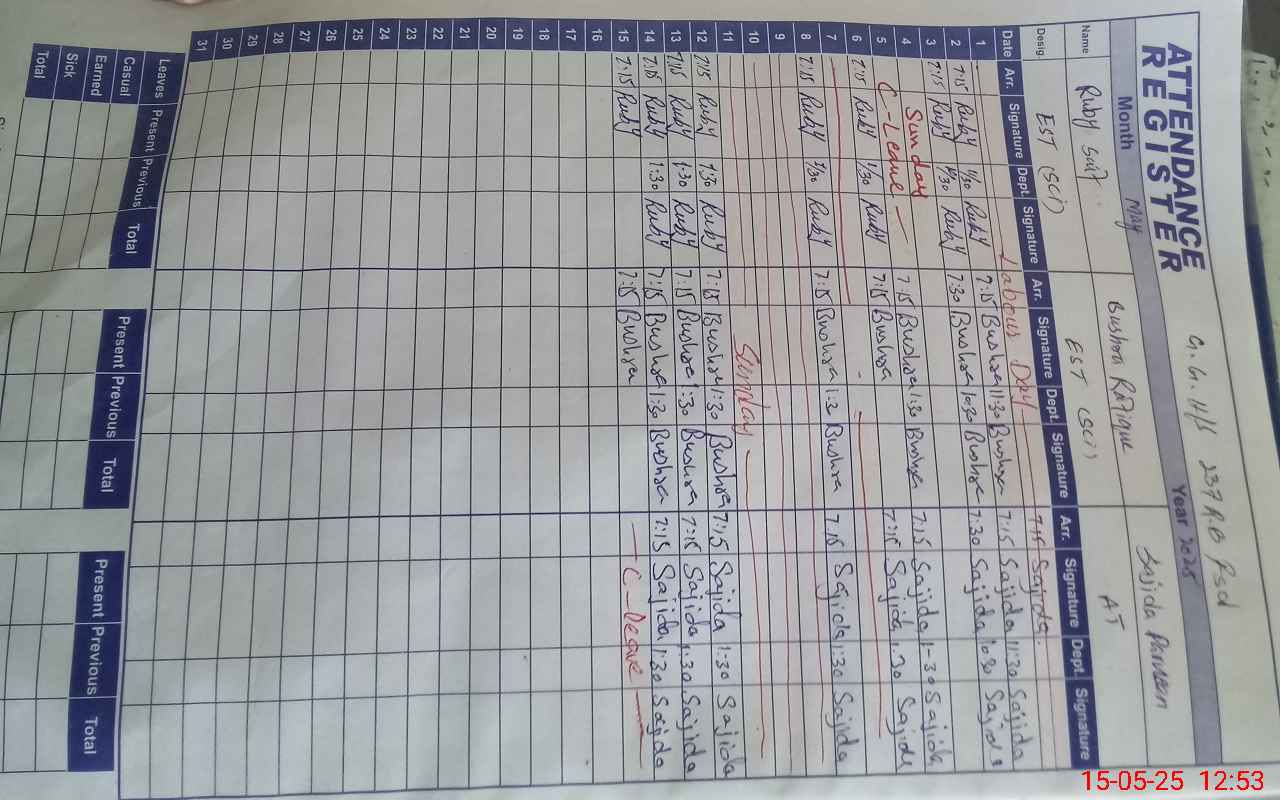 G.G.H/S 237 R.B Fsd
ATTENDANCE
REGISTER
Month May Year 2025
Name Ruby Bushra Rafique Sajida Parveen
Desig. EST (SCI) EST (SCI) AT
Date Arr. Signature Dept. Signature Arr. Signature Dept. Signature Arr. Signature Dept. Signature
1 Labour Day 7:15 Sajida
2 7:15 Ruby Ruby 7:15 Bushra 11:30 Bushra 7:15 Sajida 11:30 Sajida
3 7:15 Ruby Ruby 7:30 Bushra 10:30 Bushra 7:30 Sajida 10:30 Sajida
4 Sunday
5 C-Leave 7:15 Bushra 1:30 Bushra 7:15 Sajida 1:30 Sajida
6 7:15 Ruby 1/30 Ruby 7:15 Bushra 7:15 Sajida 1:30 Sajida
7
8 7:15 Ruby 1/30 Ruby 7:15 Bushra 1:3 Bushra 7:15 Sajida 1:30 Sajida
9
10
11 Sunday
12 7:15 Ruby 1:30 Ruby 7:15 Bushra 1:30 Bushra 7:15 Sajida 1:30 Sajida
13 7:15 Ruby 1:30 Ruby 7:15 Bushra 1:30 Bushra 7:15 Sajida 1:30 Sajida
14 7:15 Ruby 1:30 Ruby 7:15 Bushra 1:30 Bushra 7:15 Sajida 1:30 Sajida
15 7:15 Ruby 7:15 Bushra C-Leave
16
17
18
19
20
21
22
23
24
25
26
27
28
29
30
31
Leaves Present Previous Total Present Previous Total Present Previous Total
Casual
Earned
Sick
Total
15-05-25 12:53